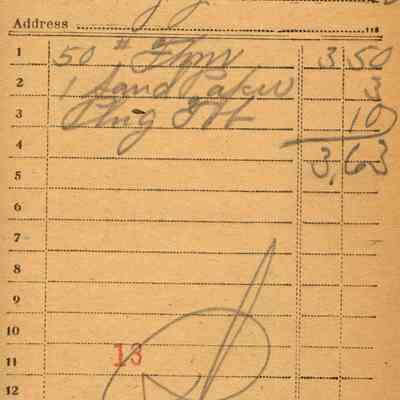 Address
1 50 # Flour 3 50
2 1 Sand Paper 3
3 Plug Tob 10
4 3,63
5
6
7
8
9
10
11 13
12